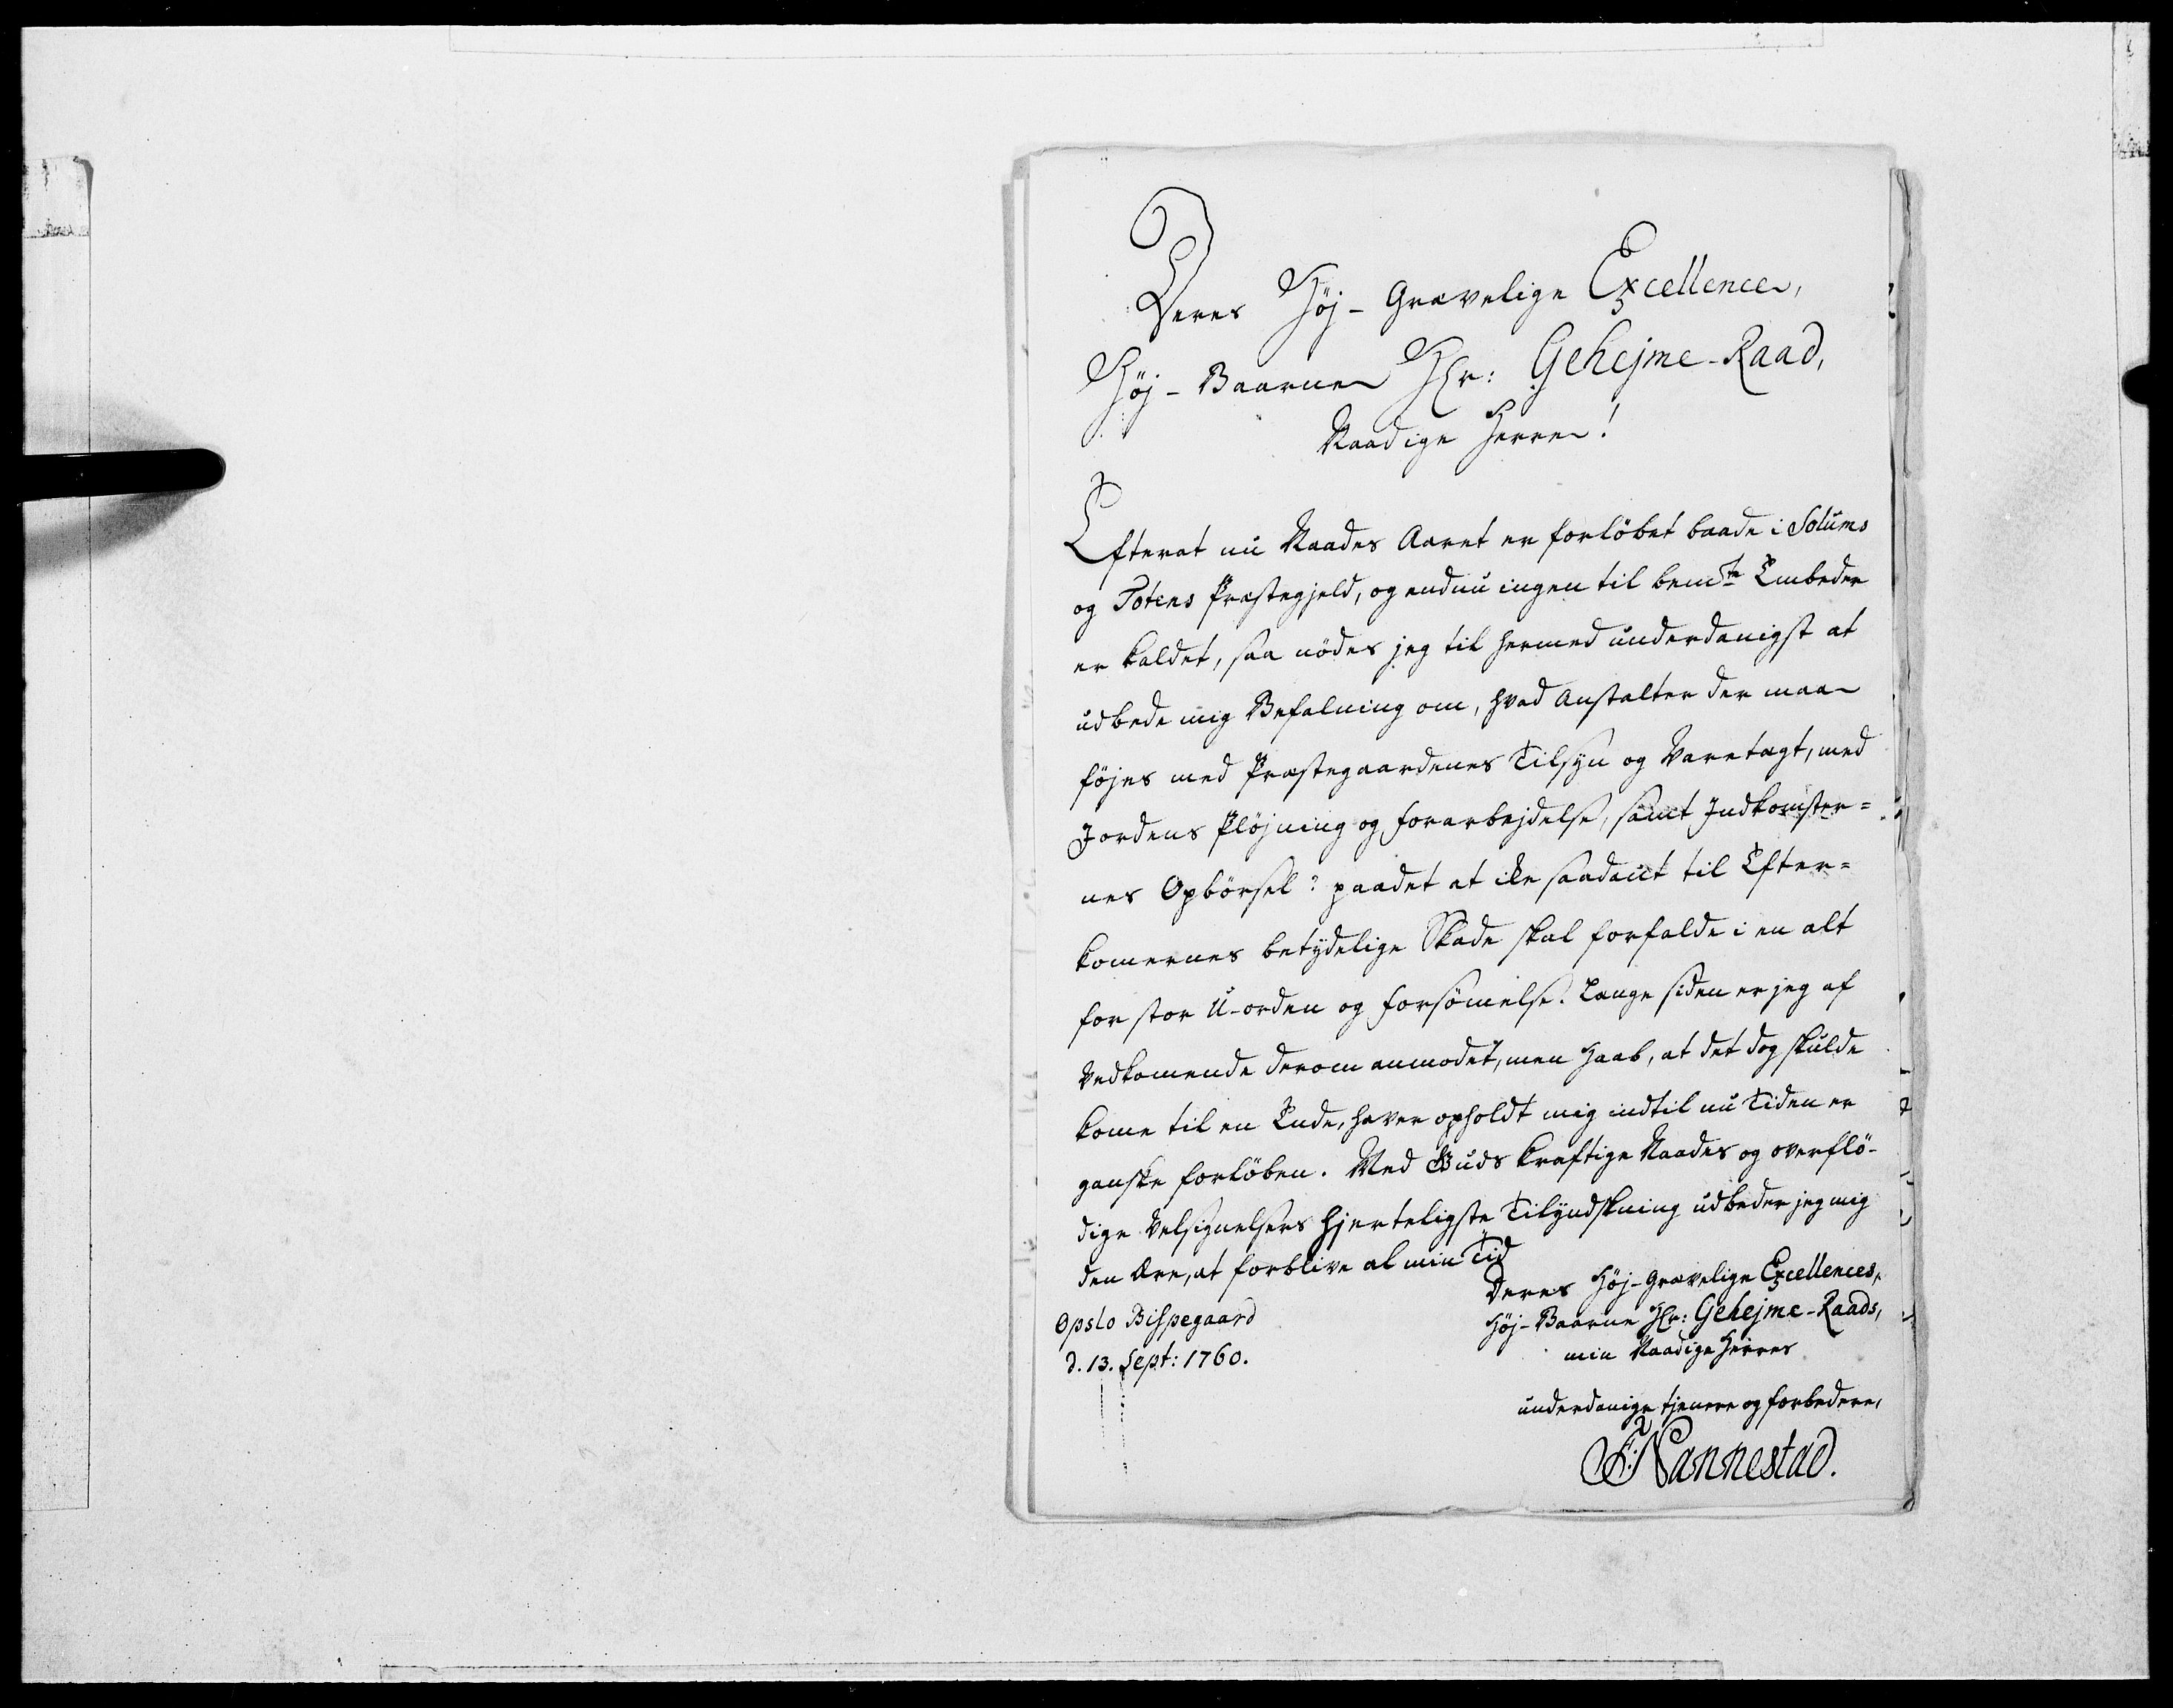 Deres Høj-Grævelige Excellence,
Høj-Baarne Hr: Gehejme-Raad,
Naadige Herre!
Efterat nu Naades Aaret er forløbet baade i Solums
og Totens Præstegjeld, og endnu ingen til bemte Embeder
er kaldet, saa nødes jeg til hermed underdanigst at
udbede mig Befalning om, hvad Anstalter der maa
føjes med Præstegaardenes Tilsyn og Varetægt, med
Jordens Pløjning og forarbejdelse, samt Indkomster=
nes Opbørsel? paadet at ike saadant til Efter=
komernes betydelige Skade skal forfalde i en alt
for stor U-orden og forsømelse. Længe siden er jeg af
Vedkomende derom anmodet, men Haab, at det dog skulde
kome til en Ende, haver opholdt mig indtil nu Tiden er
ganske forløben. Med Guds kraftige Naades og overflø-
dige Velsignelsers hjerteligste Tilyndskning udbeder jeg mig
den Ære, at forblive al min Tid
Deres Høj-Grævelige Excellences,
Høj-Baarne Hr: Gehejme-Raads,
min Naadige Herres
Opslo Bispegaard
d. 13. Sept: 1760.
underdanige tjenere og forbedere,
F: Nannestad.